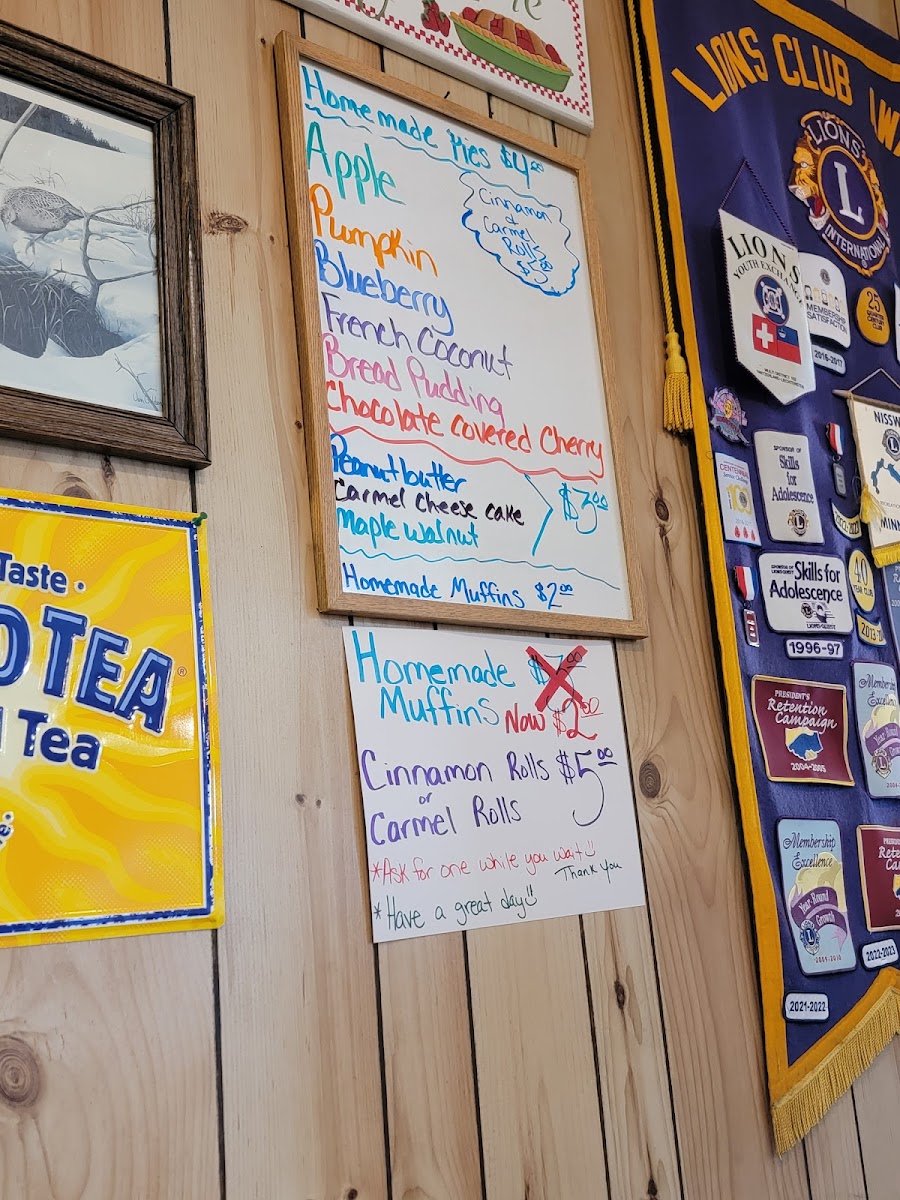 Homemade Pies $4.00
Apple
Pumpkin
Blueberry
French Coconut
Bread Pudding
Chocolate covered Cherry
Cinnamon
&
Carmel
Rolls
$5.00
Peanutbutter
Carmel Cheese cake
Maple Walnut
$3.00
Homemade Muffins $2.00
Homemade
Muffins Now $2.00
Cinnamon Rolls $5.00
or
Carmel Rolls
*Ask for one while you wait
Thank you
*Have a great day
Taste
TEA
Tea
LIONS CLUB
LIONS
L
INTERNATIONAL
LIONS
YOUTH EXCHANGE
MEMBERSHIP
SATISFACTION
2016-2017
25
CENTENNIAL
SPONSOR OF
Skills
for
Adolescence
Skills for
Adolescence
1996-97
40
YEAR CLUB
NISSW
MINN
PRESIDENT'S
Retention
Campaign
2004-2005
Membership
Excellence
Year-Round
Growth
Membership
Excellence
Year-Round
Growth
2009-2010
2022-2023
2021-2022